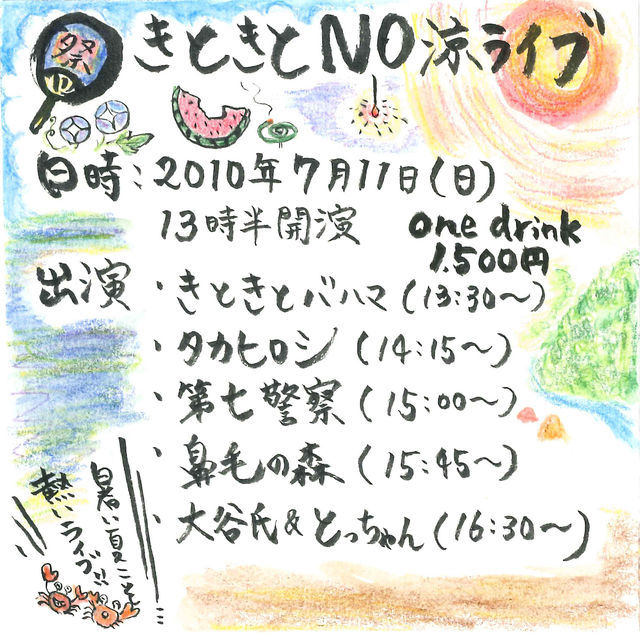 祭
きときとNO涼ライブ
日時：2010年7月11日(日)
13時半開演
one drink
1.500円
出演
・きときとバハマ(13:30〜)
・タカヒロシ(14:15〜)
・第七警察(15:00〜)
・鼻毛の森(15:45〜)
・大谷氏&とっちゃん(16:30〜)
暑い夏こそ
熱いライブ!!